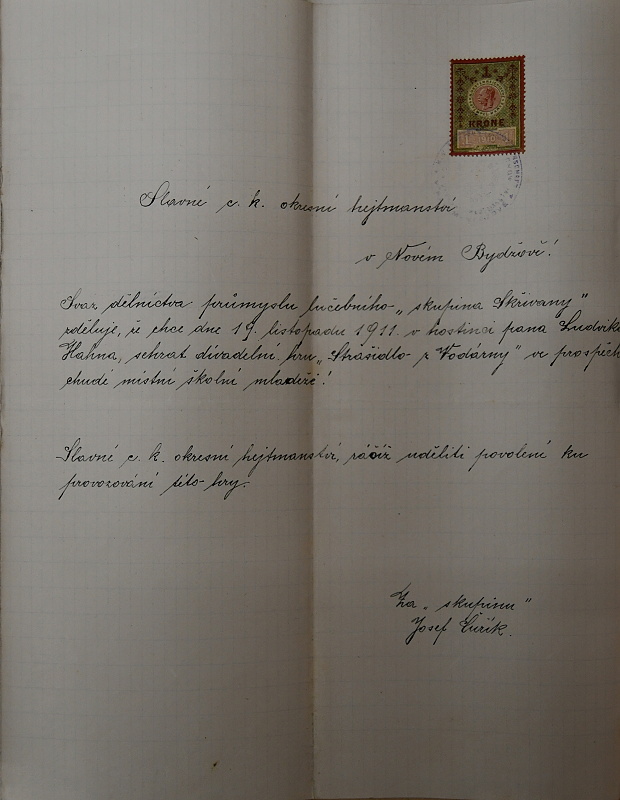 1
KRONE
Slavné c. k. okresní hejtmanství
v Novém Bydžově!
Svaz dělnictva průmyslu lučebního „skupina Skřivany"
zděluje, že chce dne 19. listopadu 1911. v hostinci pana Ludvíka
Hahna, sehrat divadelní hru „Strašidlo z Vodárny" ve prospěch
chudé místní školní mládeže!
Slavné c. k. okresní hejtmanství, ráčíž uděliti povolení ku
provozování této hry.
Za „skupinu"
Josef